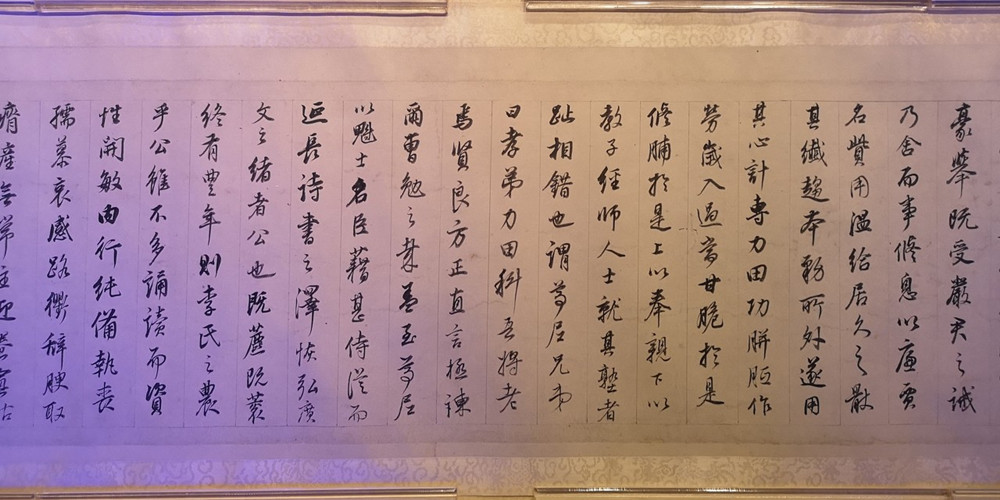 豪举既受严君之诫
乃舍而事修息以廉贾
名赀用温给居久之散
其纤趋本务所外遂用
其心计专力田功胼胝作
劳岁入过当甘脆于是
修脯于是上以奉亲下以
教子经师人士就其塾者
趾相错也谓尊尼兄弟
曰孝弟力田科吾将老
焉贤良方正直言极谏
尔曹勉之聿盖至尊尼
以魁士名臣藉甚侍从而
延长诗书之泽恢弘广
文之绪者公也既蔗既蓘
终有丰年则李氏之农
乎公虽不多诵读而资
性开敏内行纯备执丧
孺慕哀感路衢辞腴取
瘠产